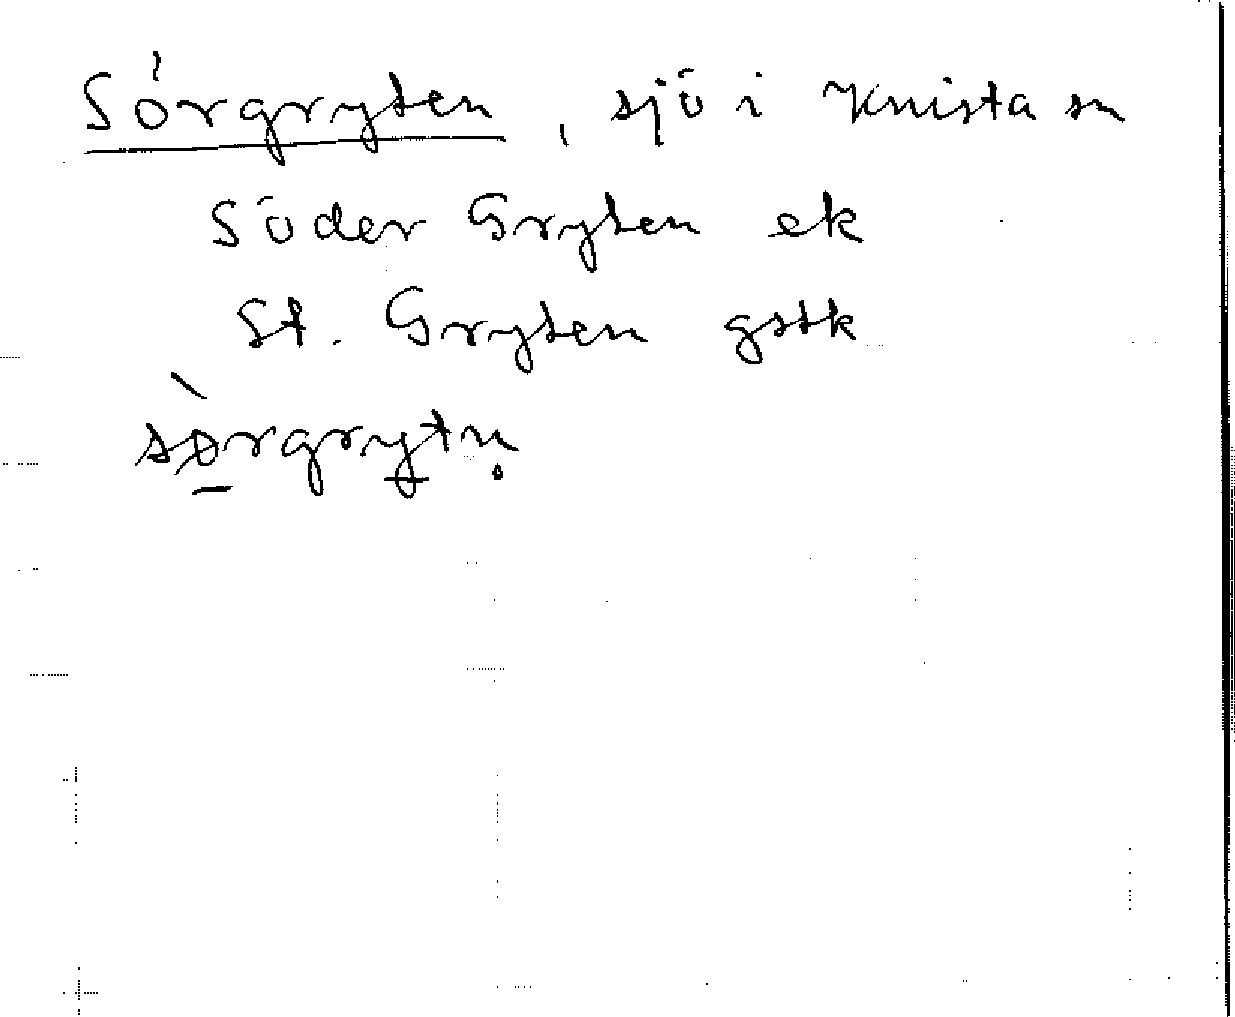 Sörgryten, sjö i Knista sn
Söder Gryten ek
St. Gryten gstk
sø̀rgrytn̥